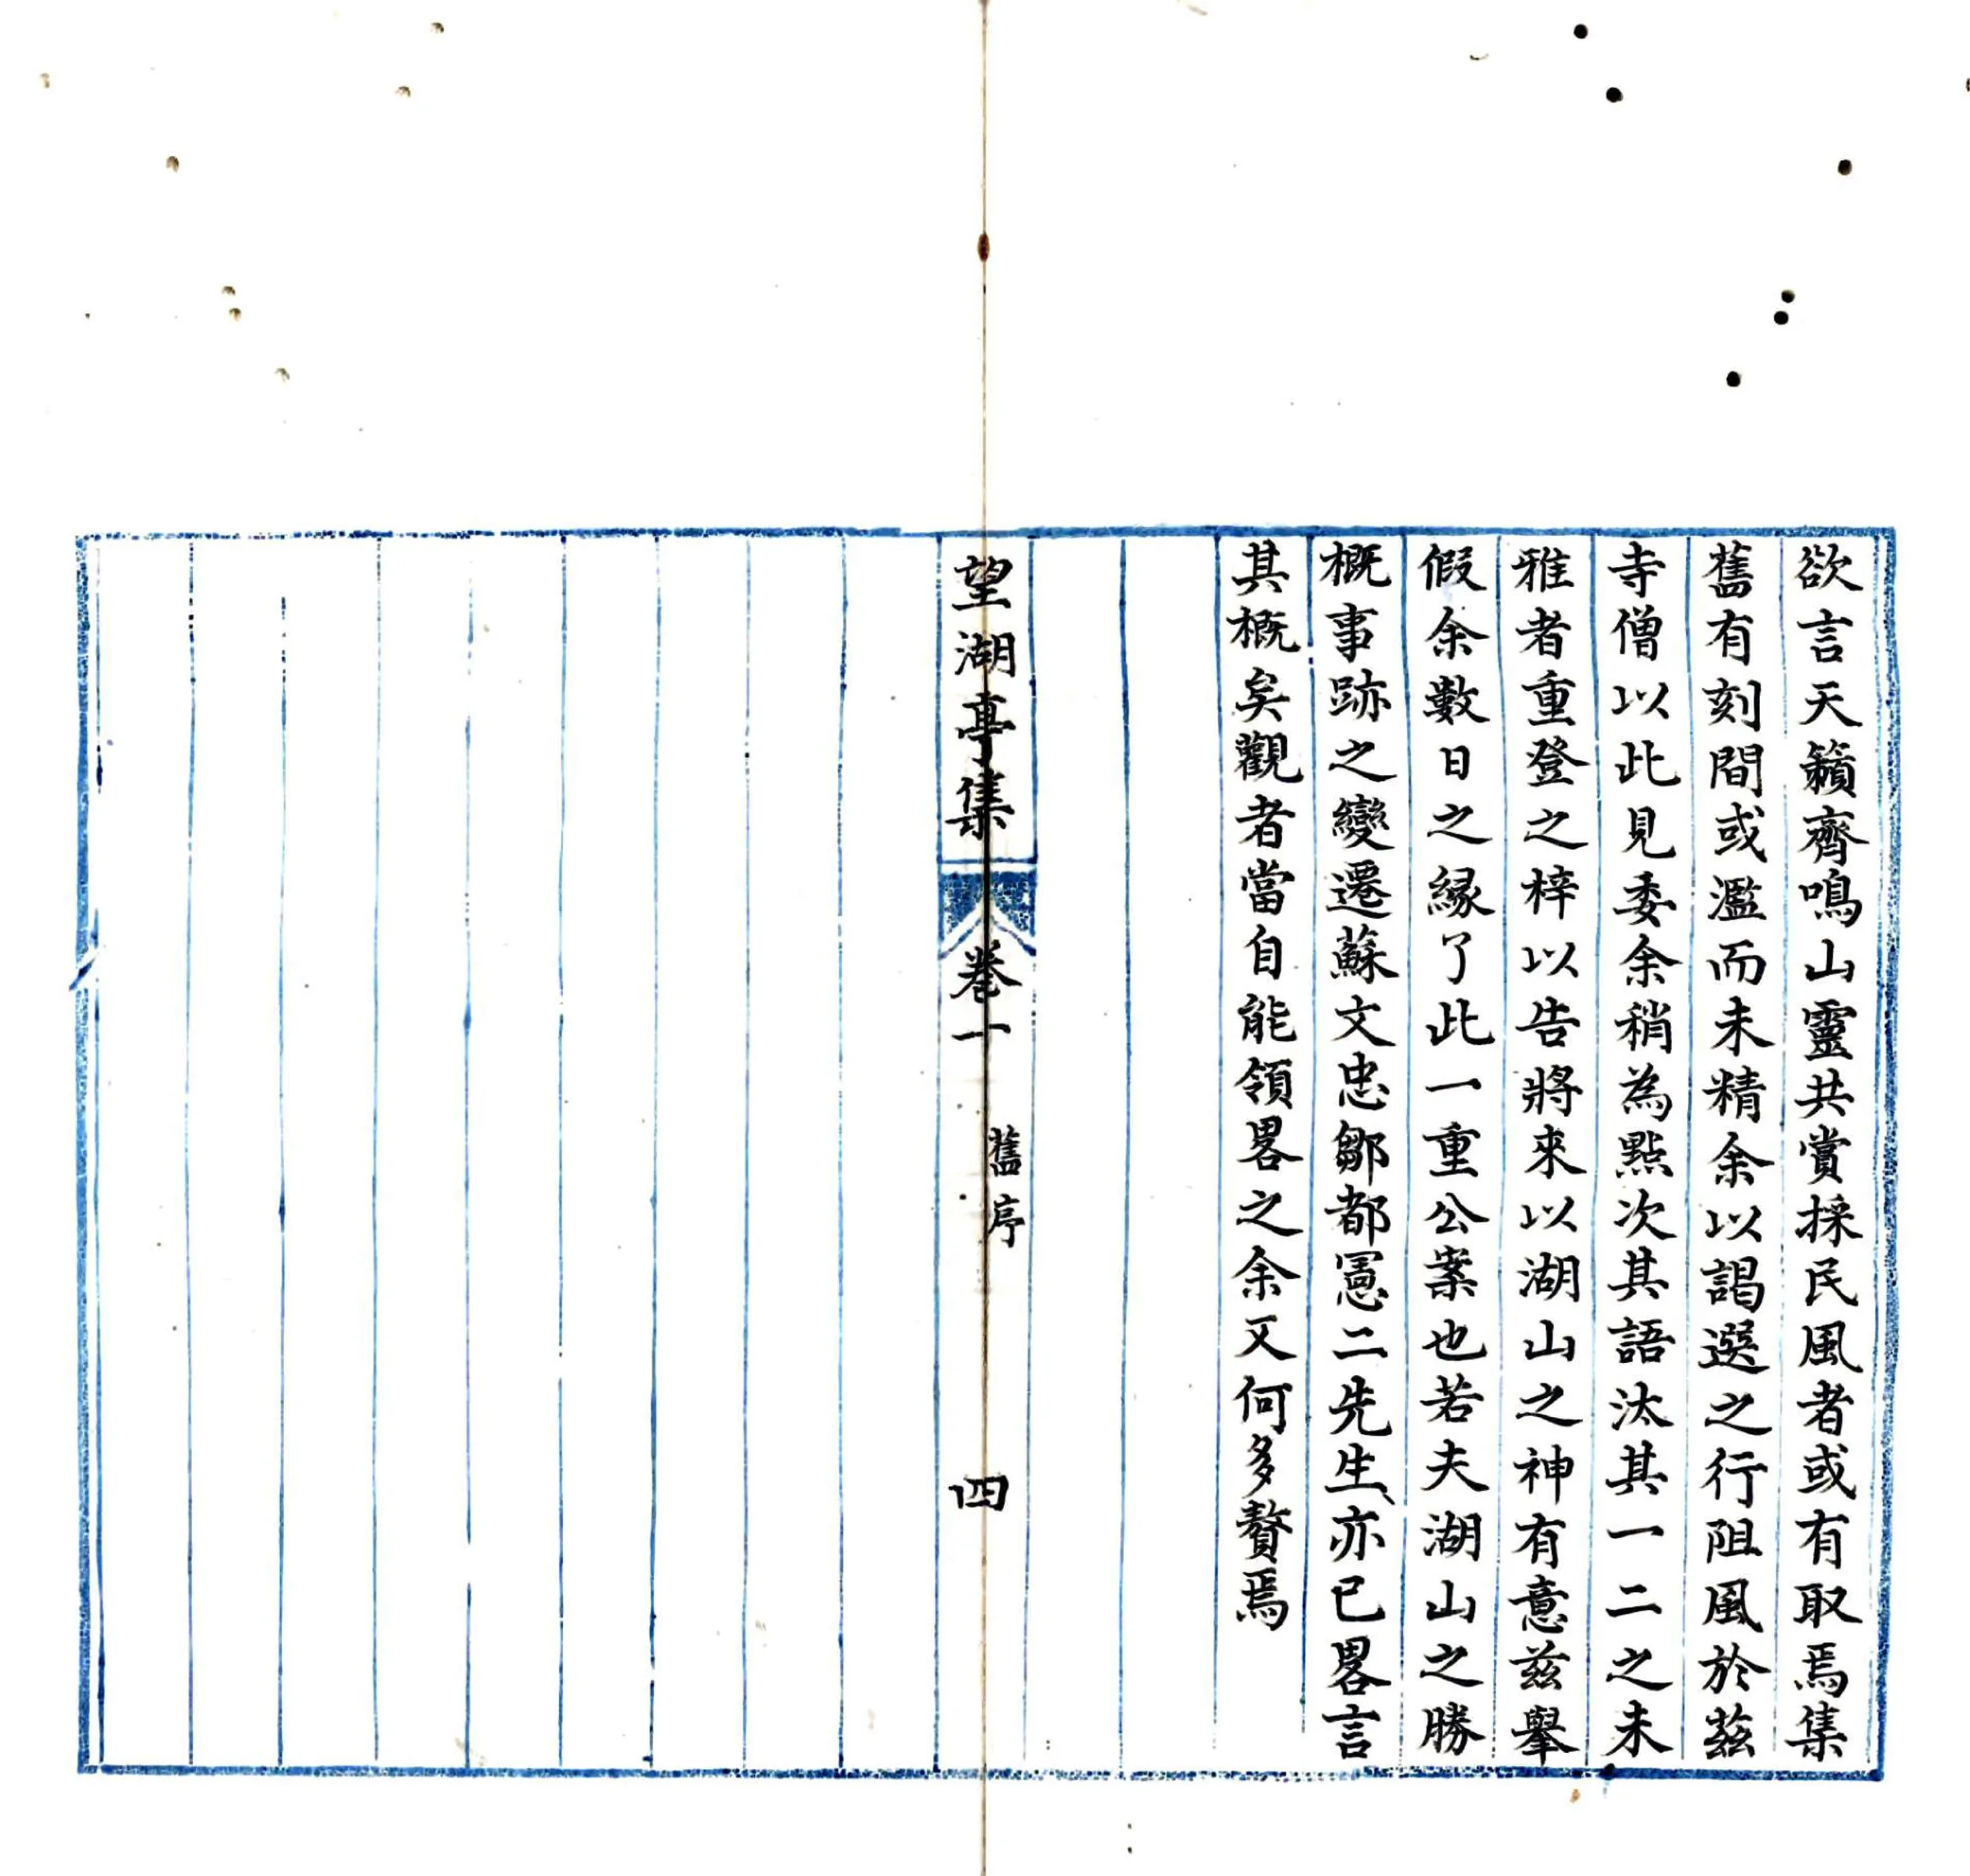 欲言天籟齊鳴山靈共賞採民風者或有取焉集
舊有刻間或濫而未精余以謁選之行阻風於兹
寺僧以此見委余稍為點次其語汰其一二之未
雅者重登之梓以告將來以湖山之神有意兹舉
假余數日之緣了此一重公案也若夫湖山之勝
概事跡之變遷蘇文忠鄒都憲二先生亦已畧言
其概矣觀者當自能領畧之余又何多贅焉
望湖亭集 卷一 舊序 四